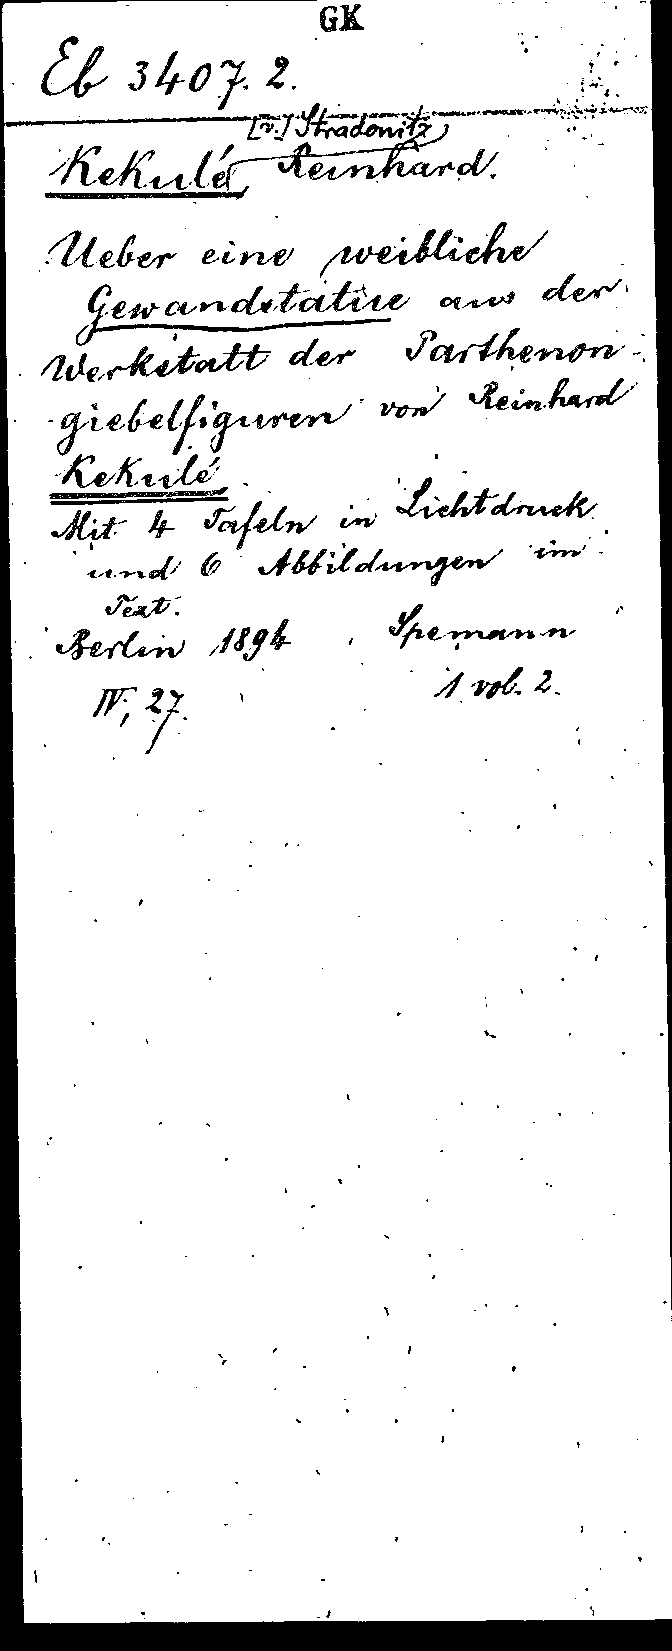 GK
Eb 3407. 2.
[v.] Stradonitz
Kekulé, Reinhard.
Ueber eine weibliche
Gewandstatue aus der
Werkstatt der Parthenon-
giebelfiguren von Reinhard
Kekulé.
Mit 4 Tafeln in Lichtdruck
und 6 Abbildungen im
Text.
Berlin 1894. Spemann
IV, 27. 1 vol. 2.